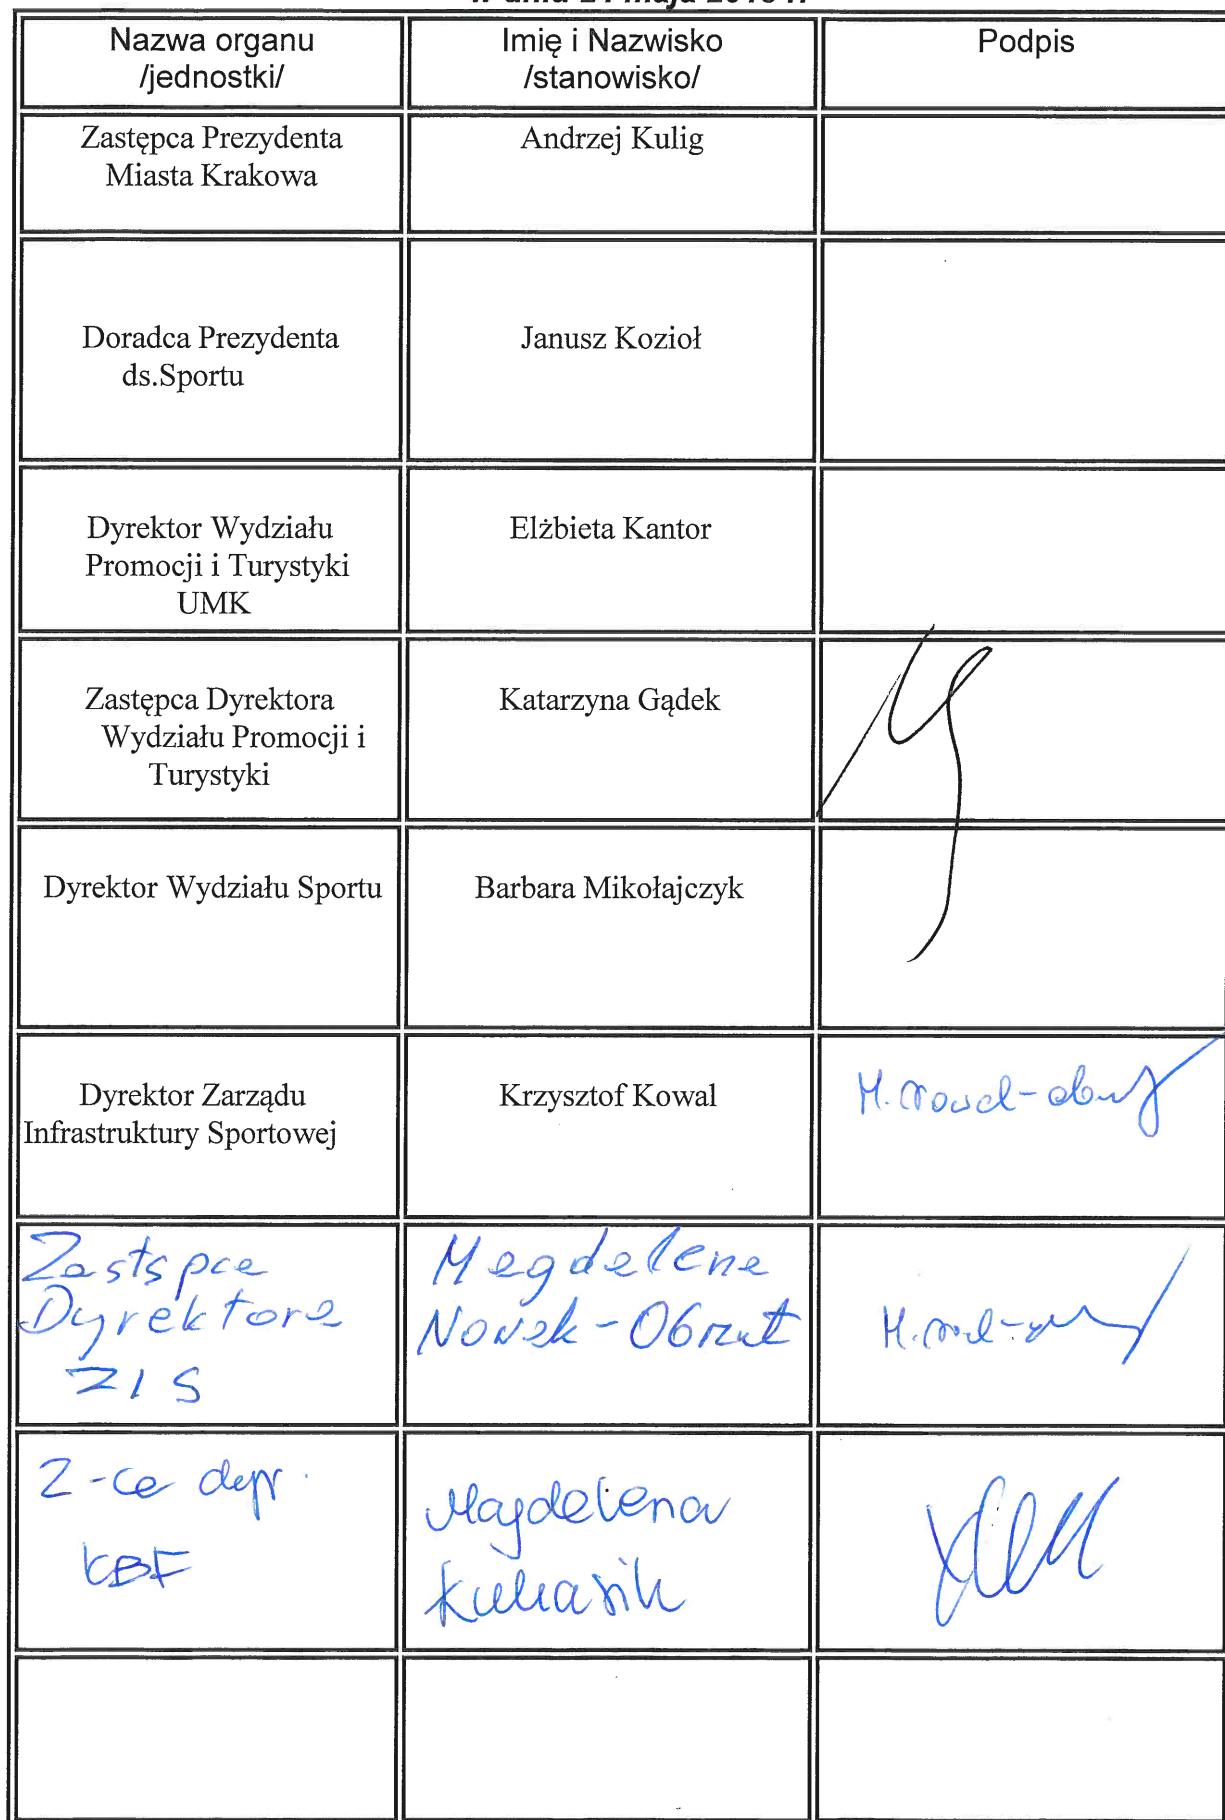 Nazwa organu
/jednostki/
Imię i Nazwisko
/stanowisko/
Podpis
Zastępca Prezydenta
Miasta Krakowa
Andrzej Kulig
Doradca Prezydenta
ds.Sportu
Janusz Kozioł
Dyrektor Wydziału
Promocji i Turystyki
UMK
Elżbieta Kantor
Zastępca Dyrektora
Wydziału Promocji i
Turystyki
Katarzyna Gądek
Dyrektor Wydziału Sportu
Barbara Mikołajczyk
Dyrektor Zarządu
Infrastruktury Sportowej
Krzysztof Kowal
Zastępca
Dyrektora
ZIS
Magdalena
Nowak-Obrzut
Z-ca dyr.
KBF
Magdalena